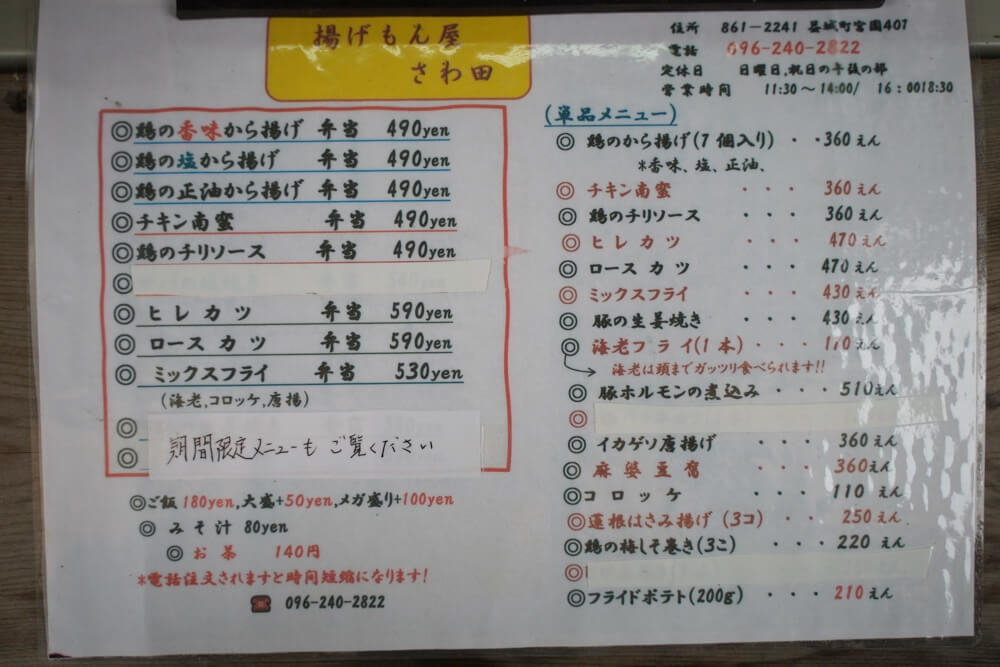 揚げもん屋
さわ田
住所 861-2241 益城町宮園407
電話 096-240-2822
定休日 日曜日,祝日の午後の部
営業時間 11:30～14:00/ 16:0018:30
◎鶏の香味から揚げ 弁当 490yen
◎鶏の塩から揚げ 弁当 490yen
◎鶏の正油から揚げ 弁当 490yen
◎チキン南蜜 弁当 490yen
◎鶏のチリソース 弁当 490yen
◎
◎ヒレカツ 弁当 590yen
◎ロースカツ 弁当 590yen
◎ミックスフライ 弁当 530yen
(海老,コロッケ,唐揚)
◎
◎
期間限定メニューも ご覧ください
◎ご飯 180yen,大盛+50yen,メガ盛り+100yen
◎みそ汁 80yen
◎お茶 140円
*電話注文されますと時間短縮になります!
☎ 096-240-2822
(単品メニュー)
◎鶏のから揚げ(7個入り)・・360えん
*香味、塩、正油、
◎チキン南蜜 ・・・ 360えん
◎鶏のチリソース ・・・ 360えん
◎ヒレカツ ・・・ 470えん
◎ロースカツ ・・・ 470えん
◎ミックスフライ ・・・ 430えん
◎豚の生姜焼き ・・・ 430えん
◎海老フライ(1本) ・・・ 170えん
海老は頭までガッツリ食べられます!!
◎豚ホルモンの煮込み ・・・510えん
◎
◎イカゲソ唐揚げ ・・・ 360えん
◎麻婆豆腐 ・・・ 360えん
◎コロッケ ・・・ 110えん
◎蓮根はさみ揚げ(3コ) ・・・ 250えん
◎鶏の梅しそ巻き(3こ) ・・・ 220えん
◎
◎フライドポテト(200g) ・・・ 210えん